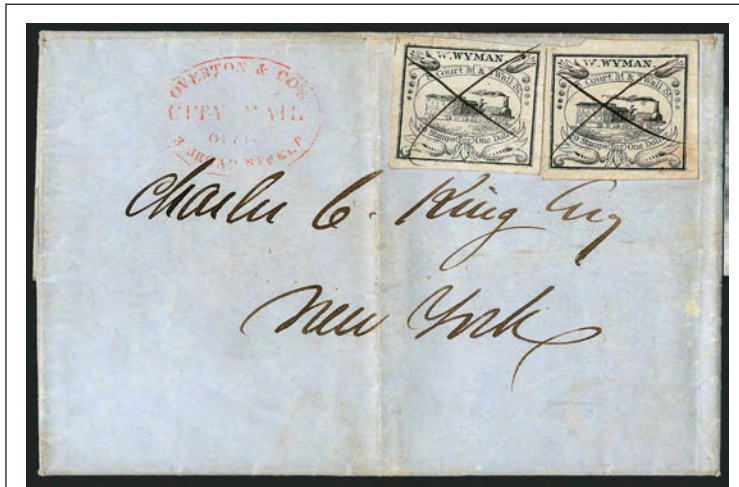 OVERTON & CO'S
CITY MAIL
3 BROAD STREET
W. WYMAN.
Court St & Wall St
20 Stamps for One Dollar
W. WYMAN.
Court St & Wall St
Stamps for One Dollar
Charles C. King Esq
New York